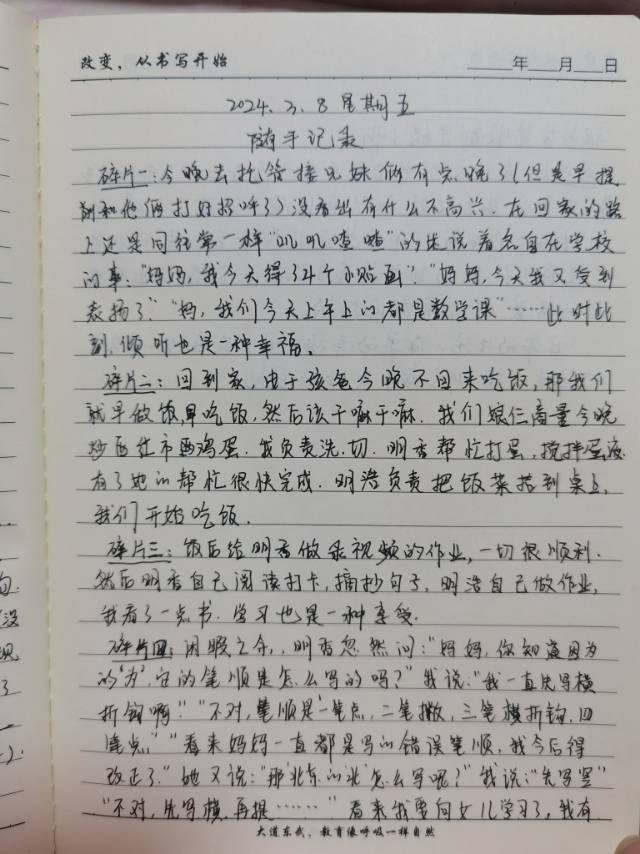 改变，从书写开始
年 月 日
2024.3.8 星期五
随手记录
碎片一：今晚去托管接兄妹俩有点晚了（但是早提
前和他俩打好招呼了）没看出有什么不高兴.在回家的路
上还是同往常一样“叽叽喳喳”的述说着各自在学校
的事：“妈妈，我今天得了4个小贴画”“妈妈，今天我又受到
表扬了”“妈，我们今天上午上的都是数学课”……此时此
刻.倾听也是一种幸福。
碎片二：回到家，由于孩爸今晚不回来吃饭，那我们
就早做饭,早吃饭.然后该干嘛干嘛.我们娘仨商量今晚
炒西红市西鸡蛋.我负责洗.切.明香帮忙打蛋，搅拌蛋液.
有了她的帮忙很快完成.明浩负责把饭菜搭到桌上.
我们开始吃饭.
碎片三：饭后给明香做录视频的作业，一切很顺利.
然后明香自己阅读打卡，摘抄句子，明浩自己做作业，
我看了一点书.学习也是一种享受.
碎片四：闲暇之余，,明香忽然问：“妈妈，你知道因为
的‘为’，它的笔顺是怎么写的吗？”我说：“我一直先写横
折钩啊”“不对，笔顺是一笔点，二笔撇，三笔横折钩,四
笔点”“看来妈妈一直都是写的错误笔顺，我今后得
改正了.”她又说：“那‘北京’的‘北’怎么写呢？”我说：“先写竖”
“不对，先写横.再提……”看来我要向女儿学习了，我有
大道东武，教育像呼吸一样自然